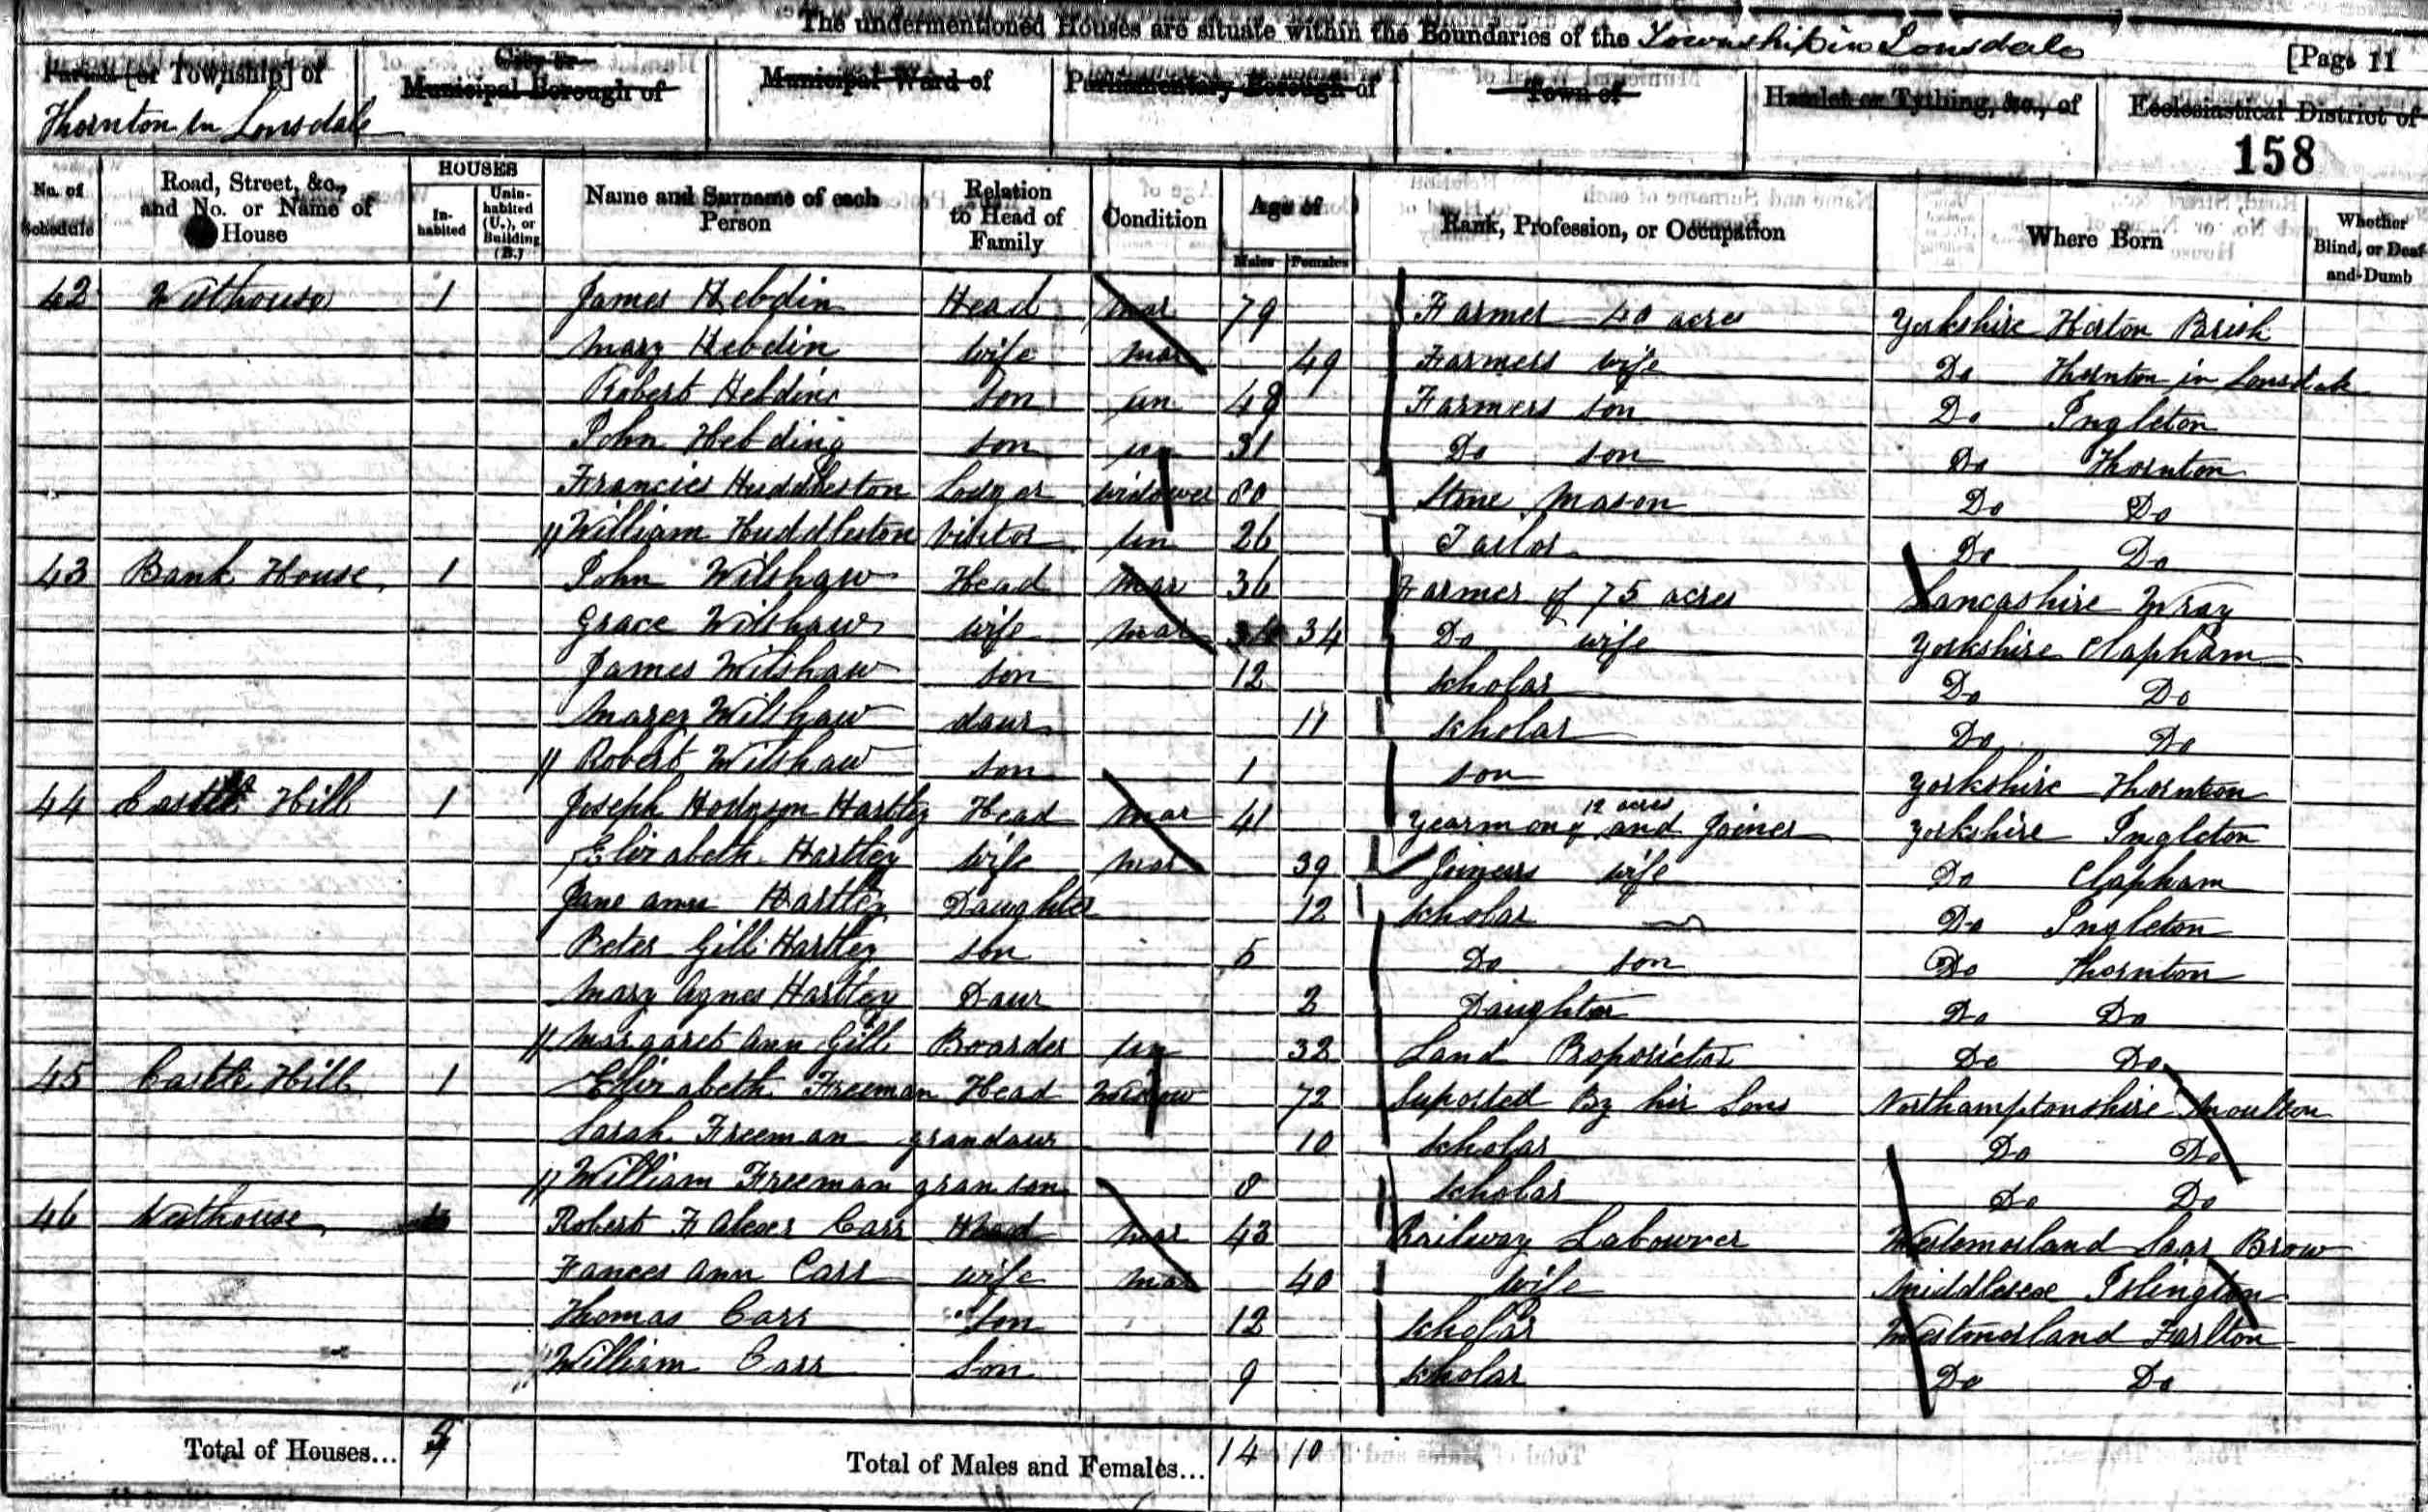 The undermentioned Houses are situate within the Boundaries of the Township in Lonsdale [Page 11
Parish [or Township] of
Thornton in Lonsdale
City or
Municipal Borough of
Municipal Ward of
Parliamentary Borough of
Town of
Hamlet or Tything, &c., of
Ecclesiastical District of
158
No. of Schedule
Road, Street, &c., and No. or Name of House
HOUSES
In-habited
Unin-habited (U.), or Building (B.)
Name and Surname of each Person
Relation to Head of Family
Condition
Age of
Males Females
Rank, Profession, or Occupation
Where Born
Whether Blind, or Deaf-and-Dumb
42 Westhouse 1 James Hebdin Head mar 79 Farmer 40 acres Yorkshire Horton Parish
Mary Hebdin wife mar 49 Farmers wife Do Thornton in Lonsdale
Robert Hebding son un 48 Farmers son Do Ingleton
John Hebding son un 31 Do son Do Thornton
Francies Huddleston Lodger widower 80 Stone Mason Do Do
// William Huddleston Visitor un 26 Tailor Do Do
43 Bank House 1 John Wilshaw Head mar 36 Farmer of 75 acres Lancashire Wray
Grace Wilshaw wife mar 34 Do wife Yorkshire Clapham
James Wilshaw son 12 scholar Do Do
Marey Wilshaw daur 11 scholar Do Do
// Robert Wilshaw son 1 son Yorkshire Thornton
44 Castle Hill 1 Joseph Hodgson Hartley Head mar 41 Yearmon of 12 acres and Joiner Yorkshire Ingleton
Elizabeth Hartley wife mar 39 Joiners wife Do Clapham
Jane ann Hartley Daughter 12 scholar Do Ingleton
Peter Gill Hartley son 5 Do son Do Thornton
Mary Agnes Hartley Daur 2 Daughter Do Do
// Margaret Ann Gill Boarder un 32 Land Roporietor Do Do
45 Castle Hill 1 Elizabeth Freeman Head Widow 72 Suported By hir Sons Northamptonshire Moulton
Sarah Freeman grandaur 10 scholar Do Do
// William Freeman gran son 8 scholar Do Do
46 Westhouse Robert Falcer Carr Head mar 43 Railway Labourer Westomorland Brow
Fances Ann Carr wife mar 40 wife Middlesex Islington
Thomas Carr Son 12 scholar Westmorland Farlton
// William Carr Son 9 scholar Do Do
Total of Houses... Total of Males and Females... 14 10